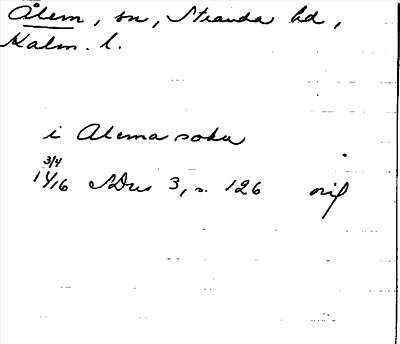 Ålem, sn, Stranda hd,
Kalm. l.
i Alema sokn
3/4
1416 SDns 3, s. 126 orig